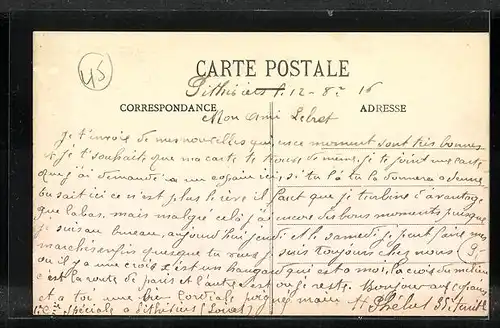 45
CARTE POSTALE
Pithiviers 12-8-16
CORRESPONDANCE ADRESSE
Mon Ami
je t'envoie de mes nouvelles qui en ce moment sont très bonnes
et je t'souhaite que ma carte te trouve de même, je te joint une carte
que j'ai demandé a un copain ici, si tu l'a tu la donnera a
ici ce n'est plus le rêve il faut que je turbine d'avantage
que labas, mais malgré cela j'ai encore des bons moments puisque
je suis au bureau, aujourd'hui jeudi et le samedi je peut faire mes
marches enfin quoique tu vois je suis toujours chez nous
ou il y a une croix c'est un hangar qui est a moi, la croix du milieu
c'est la route de paris et l'autre
et a toi une cordiale poignée main
Spéciale a Pithiviers (Loiret)